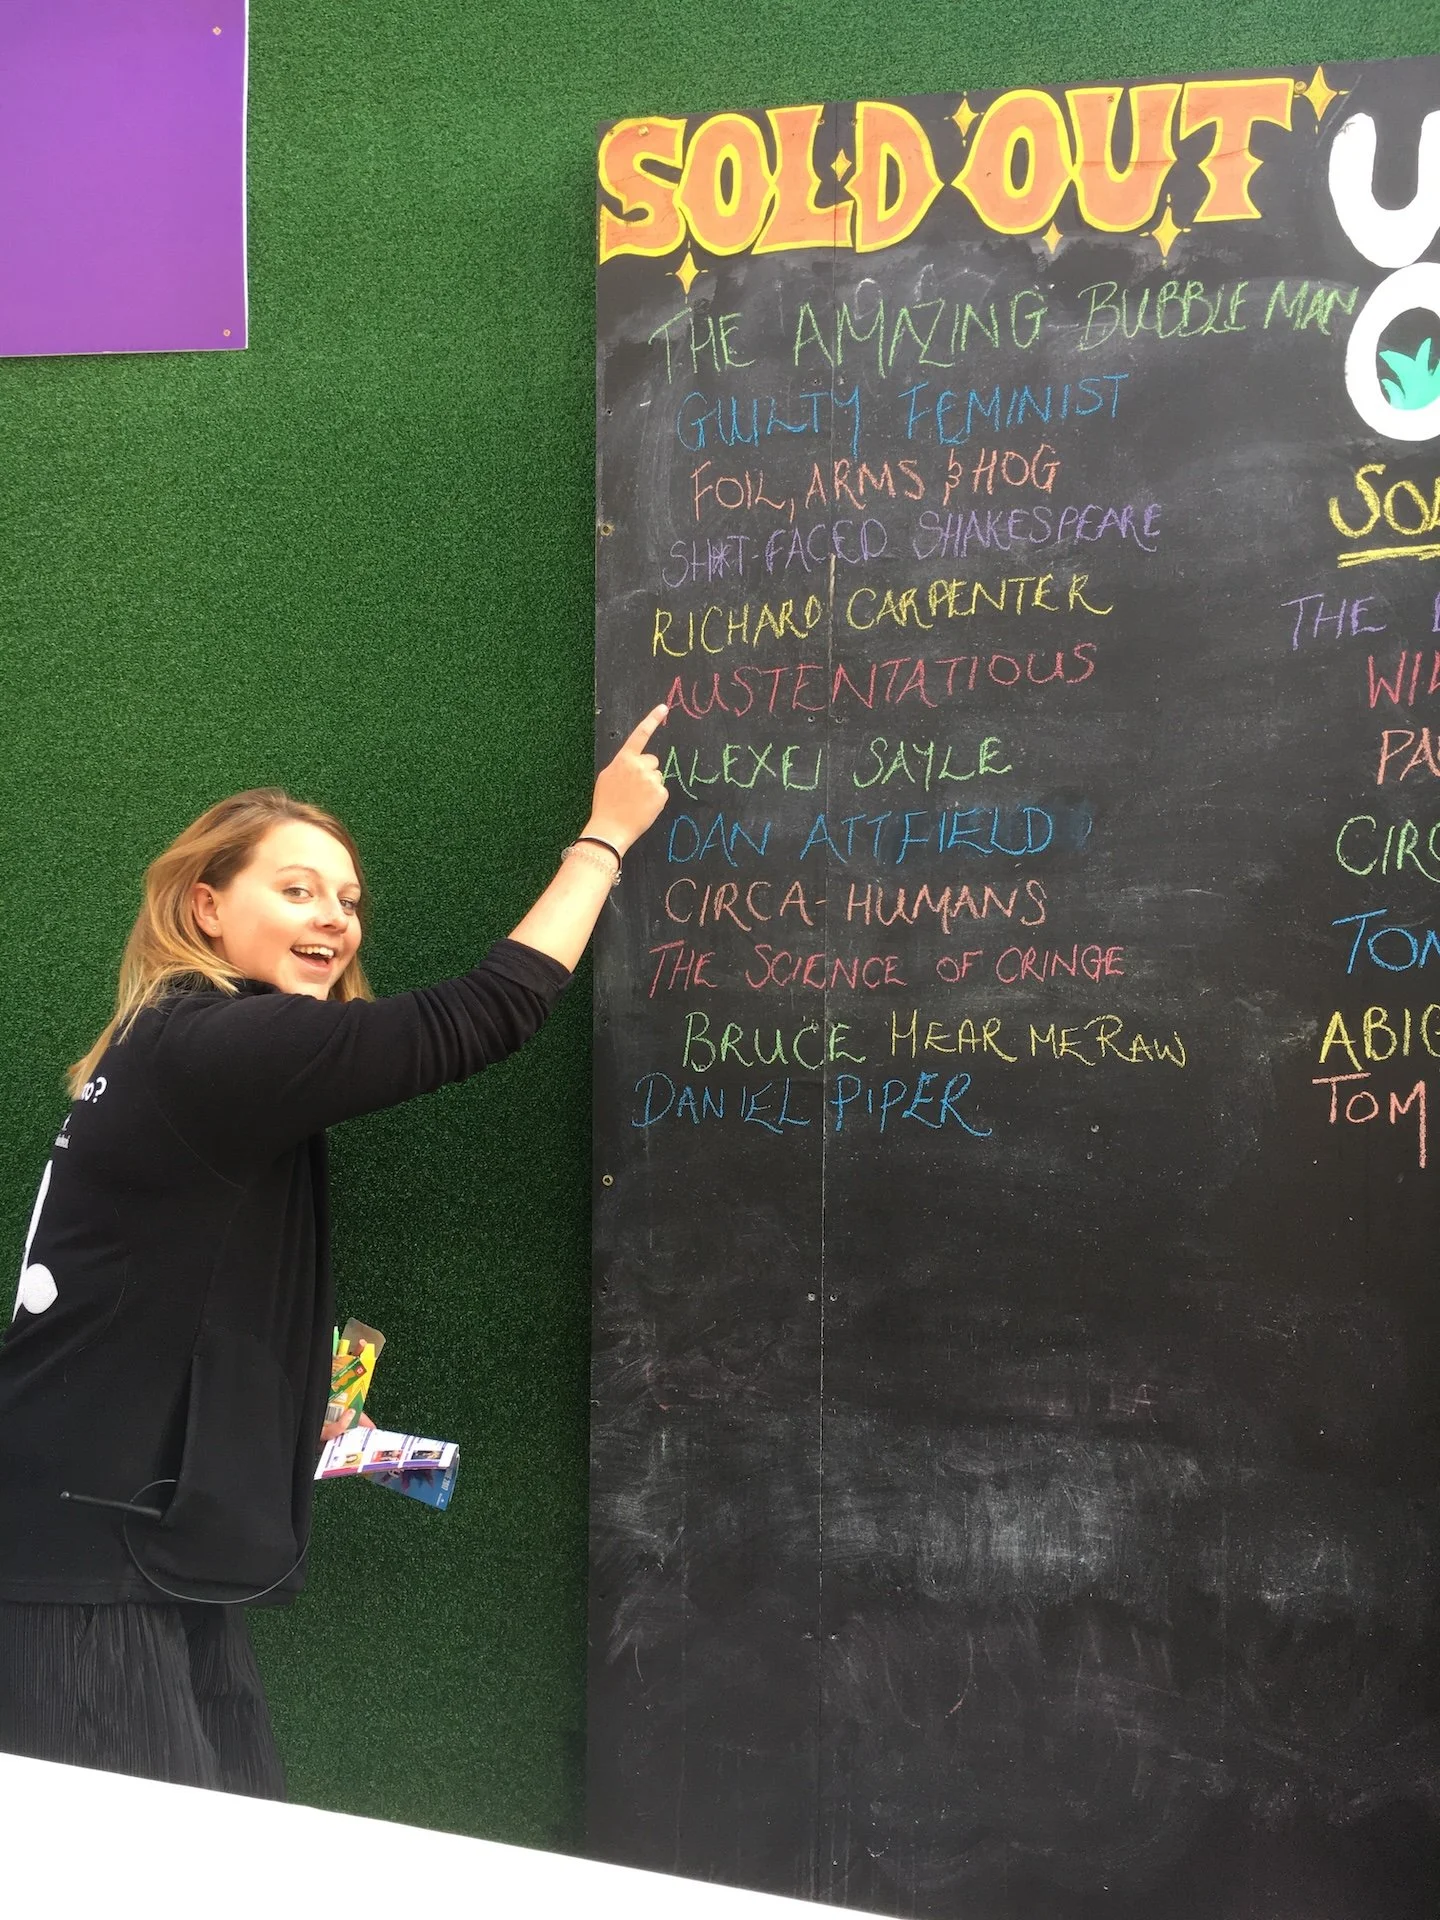 SOLD OUT
THE AMAZING BUBBLE MAN
GUILTY FEMINIST
FOIL, ARMS & HOG
SH*T-FACED SHAKESPEARE
RICHARD CARPENTER
AUSTENTATIOUS
ALEXEI SAYLE
DAN ATTFIELD
CIRCA-HUMANS
THE SCIENCE OF CRINGE
BRUCE HEAR ME RAW
DANIEL PIPER
U
O
THE
PA
CIRC
TOM